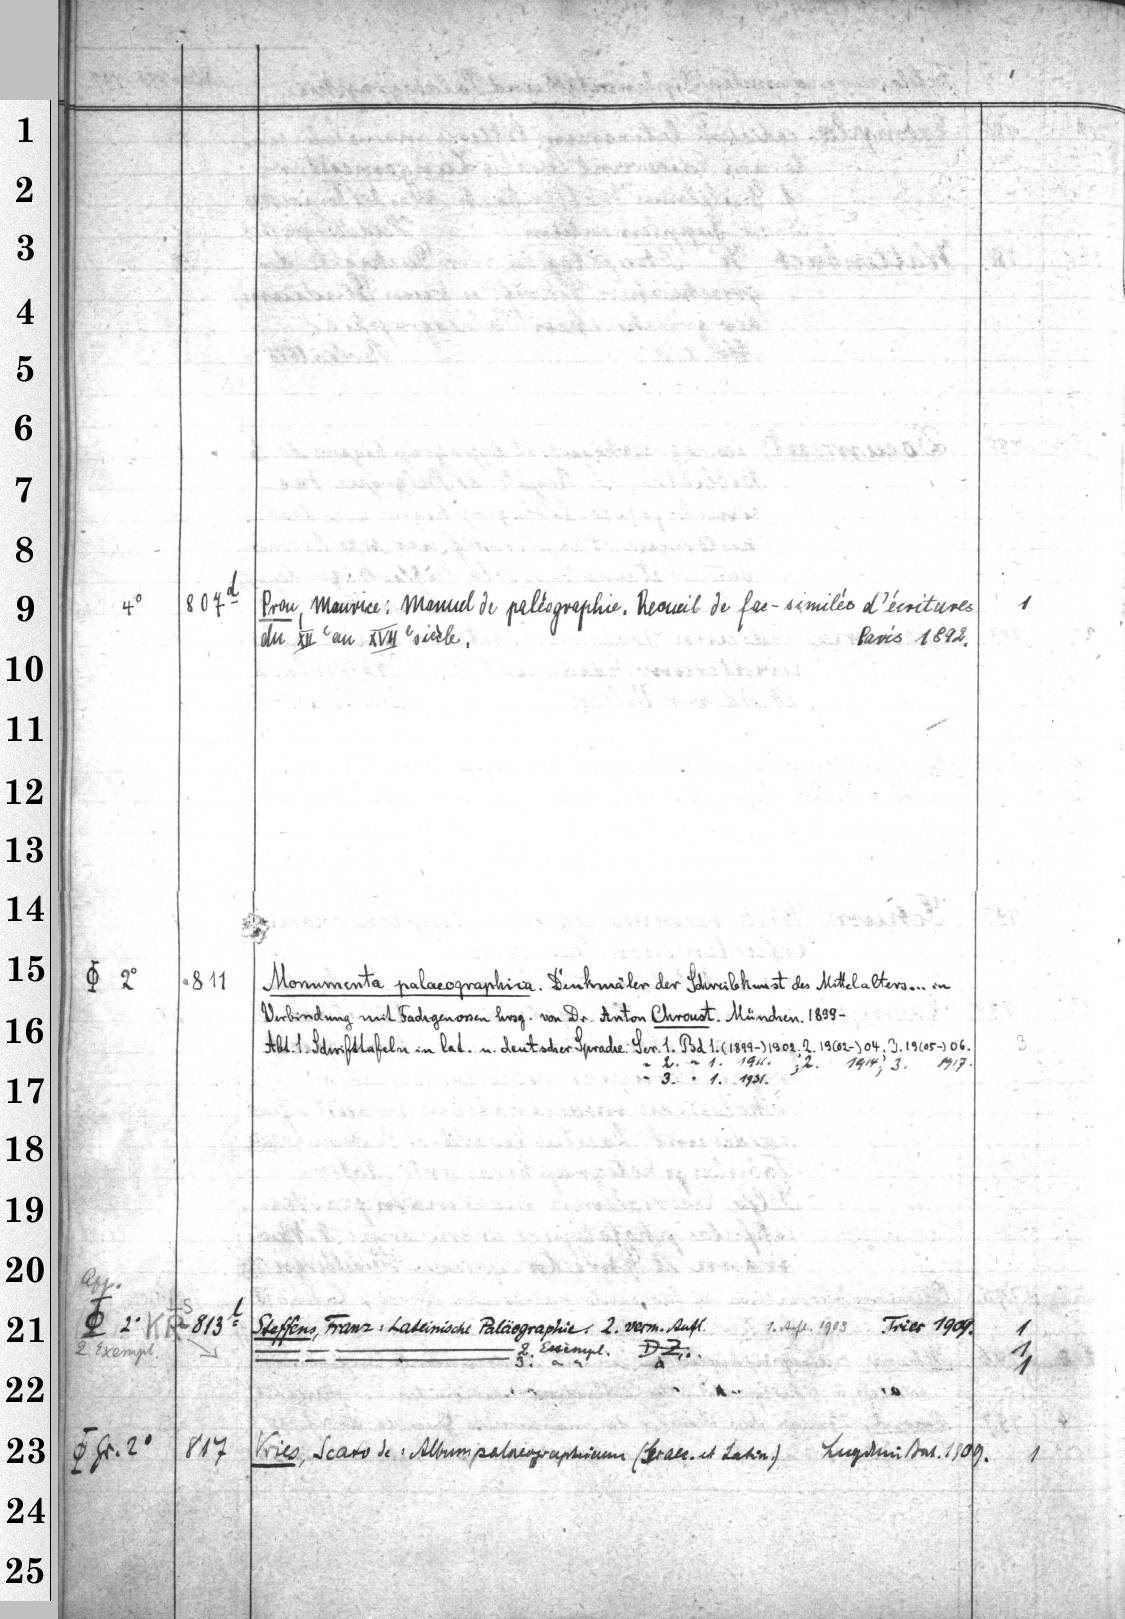 1
2
3
4
5
6
7
8
9
4° 807d Prou, Maurice: Manuel de paléographie. Recueil de fac-similés d'écritures 1
du XIIe au XVIIe siècle. Paris 1892.
10
11
12
13
14
15
Φ 2° 811 Monumenta palaeographica. Denkmäler der Schreibkunst des Mittelalters... in
Verbindung mit Fachgenossen hrsg. von Dr. Anton Chroust. München. 1899-
16
Abt. 1. Schrifttafeln in lat. u. deutscher Sprache. Ser. 1. Bd 1. (1899-) 1902; 2. 19(02-)04; 3. 19(05-)06. 3
" 2. " 1. 1911. ; 2. 1914; 3. 1917.
" 3. " 1. 1931.
17
18
19
20
App.
21
Φ 2° KR LS 813l Steffens, Franz: Lateinische Paläographie. 2. verm. Aufl. 1. Aufl. 1903 Trier 1909. 1
2 Exempl. 2. Exempl. DZ. 1
3. " " " 1
22
23
Φ gr. 2° 817 Vries, Scato de: Album palaeographicum (Graec. et Latin.) Lugduni Bat. 1909. 1
24
25